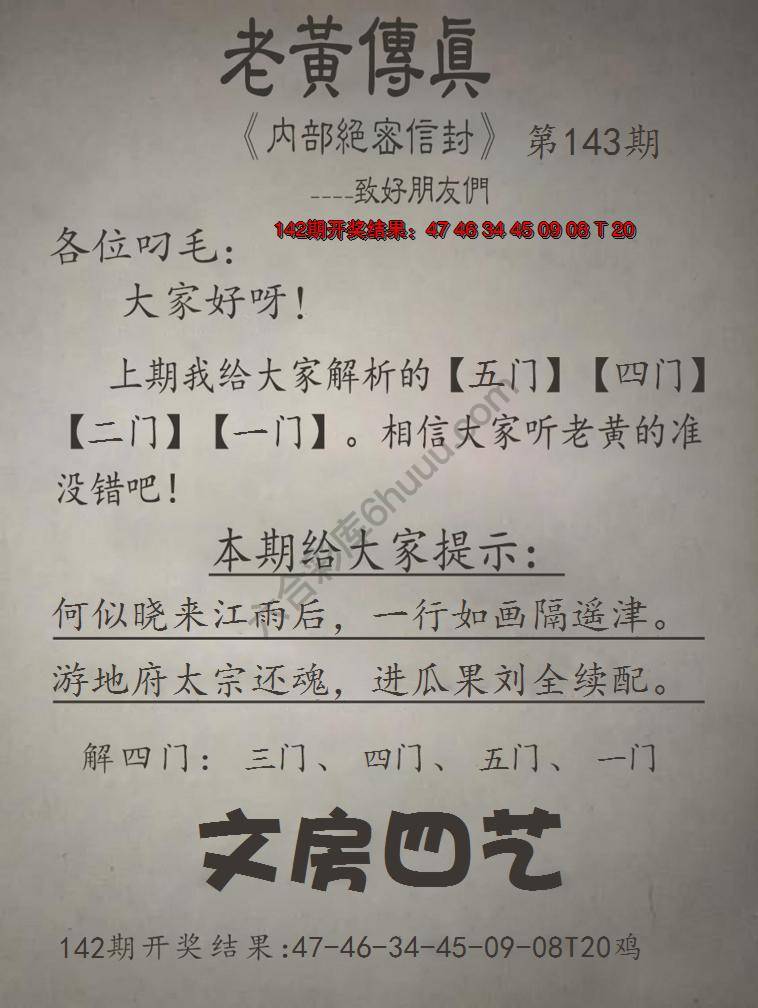 老黃傳眞
《内部絕密信封》 第143期
----致好朋友們
142期开奖结果：47 46 34 45 09 08 T 20
各位叼毛：
大家好呀！
上期我给大家解析的【五门】【四门】
【二门】【一门】。相信大家听老黄的准
没错吧！
本期给大家提示：
何似晓来江雨后，一行如画隔遥津。
游地府太宗还魂，进瓜果刘全续配。
解四门：三门、四门、五门、一门
文房四艺
142期开奖结果:47-46-34-45-09-08T20鸡
六合彩库6huuu.com